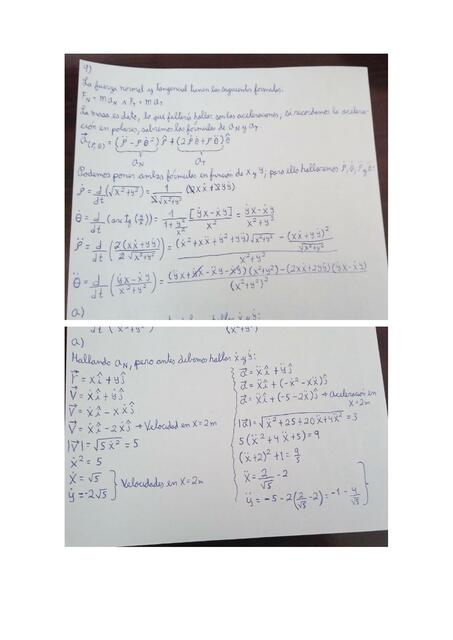 9)
La fuerza normal y tangencial tienen las siguientes fórmulas:
F_N = m a_N ∧ F_T = m a_T
La masa es dato, lo que faltaría hallar son las aceleraciones, si recordamos la acelera-
ción en polares, sabremos las fórmulas de a_N y a_T.
a⃗(ρ,θ) = (ρ̈ - ρθ̇²)ρ̂ + (2ρ̇θ̇ + ρθ̈)θ̂
a_N a_T
Podemos poner ambas fórmulas en función de x y y, para ello hallaremos ρ̇, θ̇, ρ̈ y θ̈:
ρ̇ = d/dt (√(x²+y²)) = 1/(2√(x²+y²)) (2xẋ + 2yẏ)
θ̇ = d/dt (arc tg (y/x)) = 1/(1+y²/x²) [ẏx - ẋy]/x² = (ẏx - ẋy)/(x²+y²)
ρ̈ = d/dt (2(xẋ+yẏ)/(2√(x²+y²))) = ((ẋ²+xẍ+ẏ²+yÿ)√(x²+y²) - (xẋ+yẏ)²/√(x²+y²))/(x²+y²)
θ̈ = d/dt ((ẏx-ẋy)/(x²+y²)) = ((ÿx+ẋẏ-ẍy-ẋẏ)(x²+y²) - (2xẋ+2yẏ)(ẏx-ẋy))/(x²+y²)²
a)
a)
Hallando a_N, pero antes debemos hallar ẋ y ẏ:
r⃗ = xî + yĵ
v⃗ = ẋî + ẏĵ
v⃗ = ẋî - xẋĵ
v⃗ = ẋî - 2ẋĵ → Velocidad en x=2m
|v⃗| = √(5ẋ²) = 5
ẋ² = 5
ẋ = √5
ẏ = -2√5 } Velocidades en x=2m
a⃗ = ẍî + ÿĵ
a⃗ = ẍî + (-ẋ² - xẍ)ĵ
a⃗ = ẍî + (-5-2ẍ)ĵ → Aceleración en
x=2m
|a⃗| = √(ẍ²+25+20ẍ+4ẍ²) = 3
5(ẍ²+4ẍ+5) = 9
(ẍ+2)²+1 = 9/5
ẍ = 2/√5 - 2
ÿ = -5 - 2(2/√5 - 2) = -1 - 4/√5